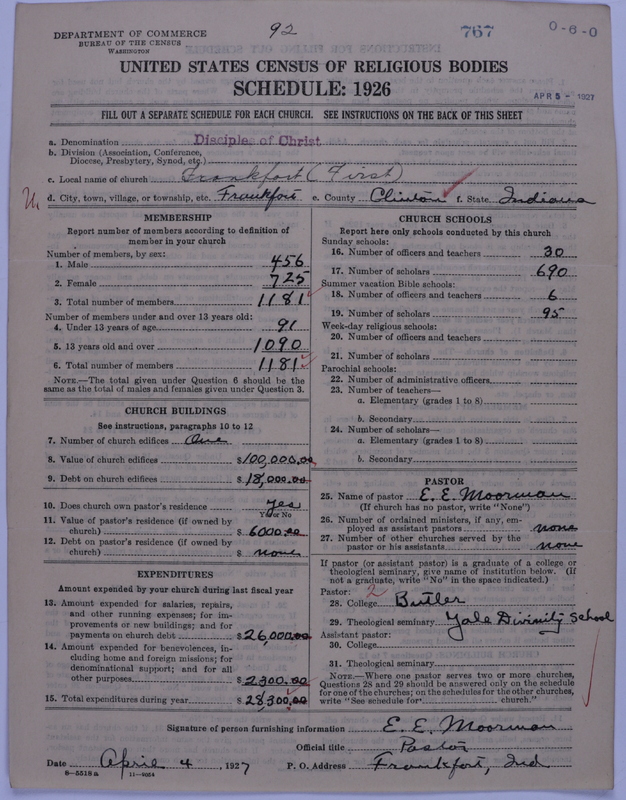 DEPARTMENT OF COMMERCE
BUREAU OF THE CENSUS
WASHINGTON
92
767
0-6-0
UNITED STATES CENSUS OF RELIGIOUS BODIES
SCHEDULE: 1926
APR 5 - 1927
FILL OUT A SEPARATE SCHEDULE FOR EACH CHURCH. SEE INSTRUCTIONS ON THE BACK OF THIS SHEET
a. Denomination Disciples of Christ
b. Division (Association, Conference, Diocese, Presbytery, Synod, etc.)
c. Local name of church Frankfort (First)
d. City, town, village, or township, etc. Frankfort e. County Clinton f. State Indiana
MEMBERSHIP
Report number of members according to definition of
member in your church
Number of members, by sex:
1. Male 456
2. Female 725
3. Total number of members 1181
Number of members under and over 13 years old:
4. Under 13 years of age 91
5. 13 years old and over 1090
6. Total number of members 1181
NOTE.—The total given under Question 6 should be the
same as the total of males and females given under Question 3.
CHURCH BUILDINGS
See instructions, paragraphs 10 to 12
7. Number of church edifices One
8. Value of church edifices $100,000.00
9. Debt on church edifices $18,000.00
10. Does church own pastor's residence yes
Yes or No
11. Value of pastor's residence (if owned by
church) $6000.00
12. Debt on pastor's residence (if owned by
church) $ none
EXPENDITURES
Amount expended by your church during last fiscal year
13. Amount expended for salaries, repairs,
and other running expenses; for im-
provements or new buildings; and for
payments on church debt $26,000.00
14. Amount expended for benevolences, in-
cluding home and foreign missions; for
denominational support; and for all
other purposes $2300.00
15. Total expenditures during year $28,300.00
CHURCH SCHOOLS
Report here only schools conducted by this church
Sunday schools:
16. Number of officers and teachers 30
17. Number of scholars 690
Summer vacation Bible schools:
18. Number of officers and teachers 6
19. Number of scholars 95
Week-day religious schools:
20. Number of officers and teachers
21. Number of scholars
Parochial schools:
22. Number of administrative officers
23. Number of teachers—
a. Elementary (grades 1 to 8)
b. Secondary
24. Number of scholars—
a. Elementary (grades 1 to 8)
b. Secondary
PASTOR
25. Name of pastor E. E. Moorman
(If church has no pastor, write "None")
26. Number of ordained ministers, if any, em-
ployed as assistant pastors none
27. Number of other churches served by the
pastor or his assistants none
If pastor (or assistant pastor) is a graduate of a college or
theological seminary, give name of institution below. (If
not a graduate, write "No" in the space indicated.)
Pastor: 2
28. College Butler
29. Theological seminary Yale Divinity School
Assistant pastor:
30. College
31. Theological seminary
NOTE.—Where one pastor serves two or more churches,
Questions 28 and 29 should be answered only on the schedule
for one of the churches; on the schedules for the other churches,
write "See schedule for church."
Signature of person furnishing information E. E. Moorman
Official title Pastor
Date April 4, 1927 P. O. Address Frankfort, Ind
8-5518 a 11-9054